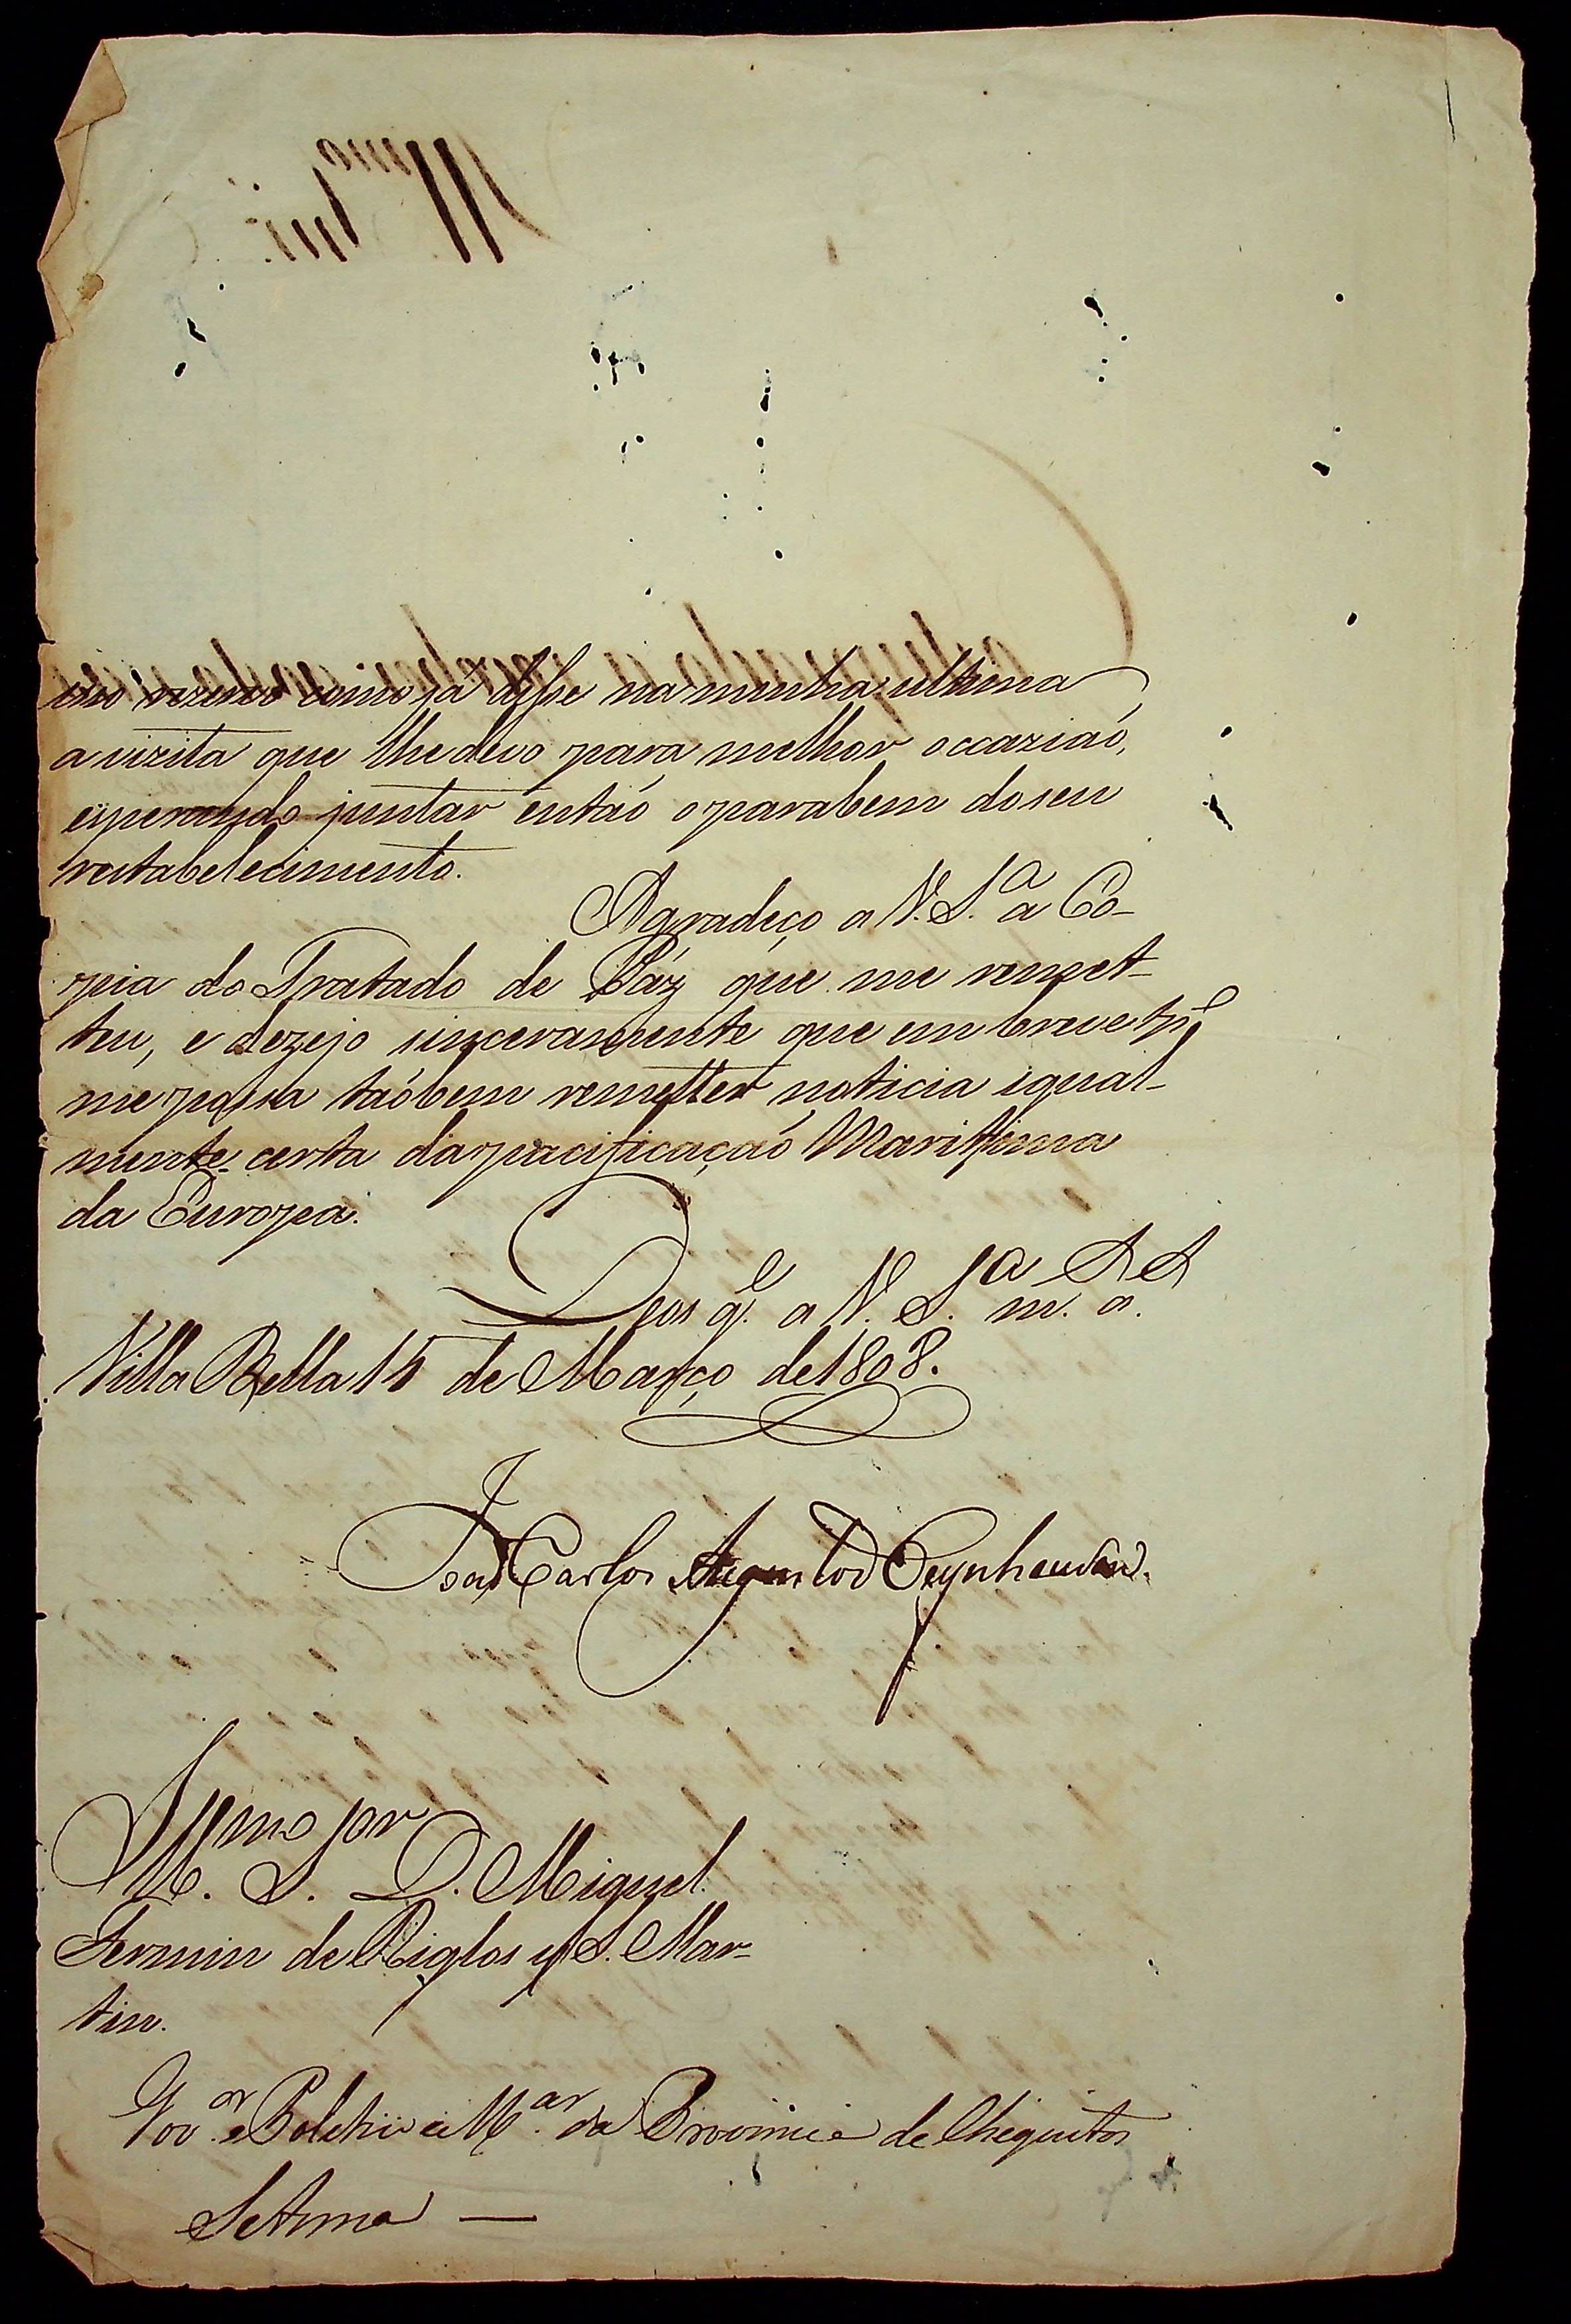 rezervo como já disse na minha ultima
a vizita que lhe devo para melhor occaziaó,
esperando juntar entaó o parabem do seu
restabelecimento.
Agradeço a V. S.ª a Co-
pia do Tratado de Páz que me remet-
teu, e dezejo sinceramente que em breve tp.e
me possa taóbem remetter noticia igual-
mente certa da pacificaçaó Maritima
da Europa.
Deos g.e a V. S.ª m. a.
Villa Bella 15 de Março de 1808.
João Carlos Augusto d'Oeynhausen.
Ill.mo S.or D. Miguel
Fermin de Riglos y S. Mar-
tin.
Gov.or e Militar da Provincia de Chiquitos